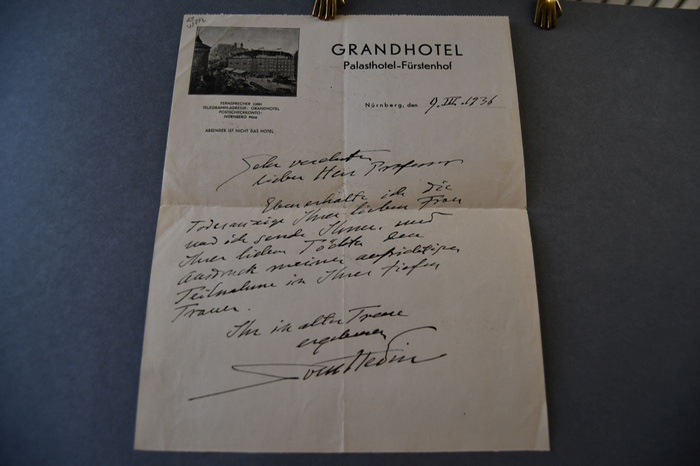 GRANDHOTEL
Palasthotel-Fürstenhof
FERNSPRECHER
TELEGRAMM-ADRESSE: GRANDHOTEL
POSTSCHECKKONTO:
NÜRNBERG
ABSENDER IST NICHT DAS HOTEL
Nürnberg, den 9. III. 1936
Sehr verehrter
lieber Herr Professor
Eben erhalte ich die
Todesanzeige Ihrer lieben Frau
und ich sende Ihnen und
Ihren lieben Töchtern den
Ausdruck meiner aufrichtigen
Teilnahme in Ihrer tiefen
Trauer.
Ihr in alter Treue
ergebener
Sven Hedin